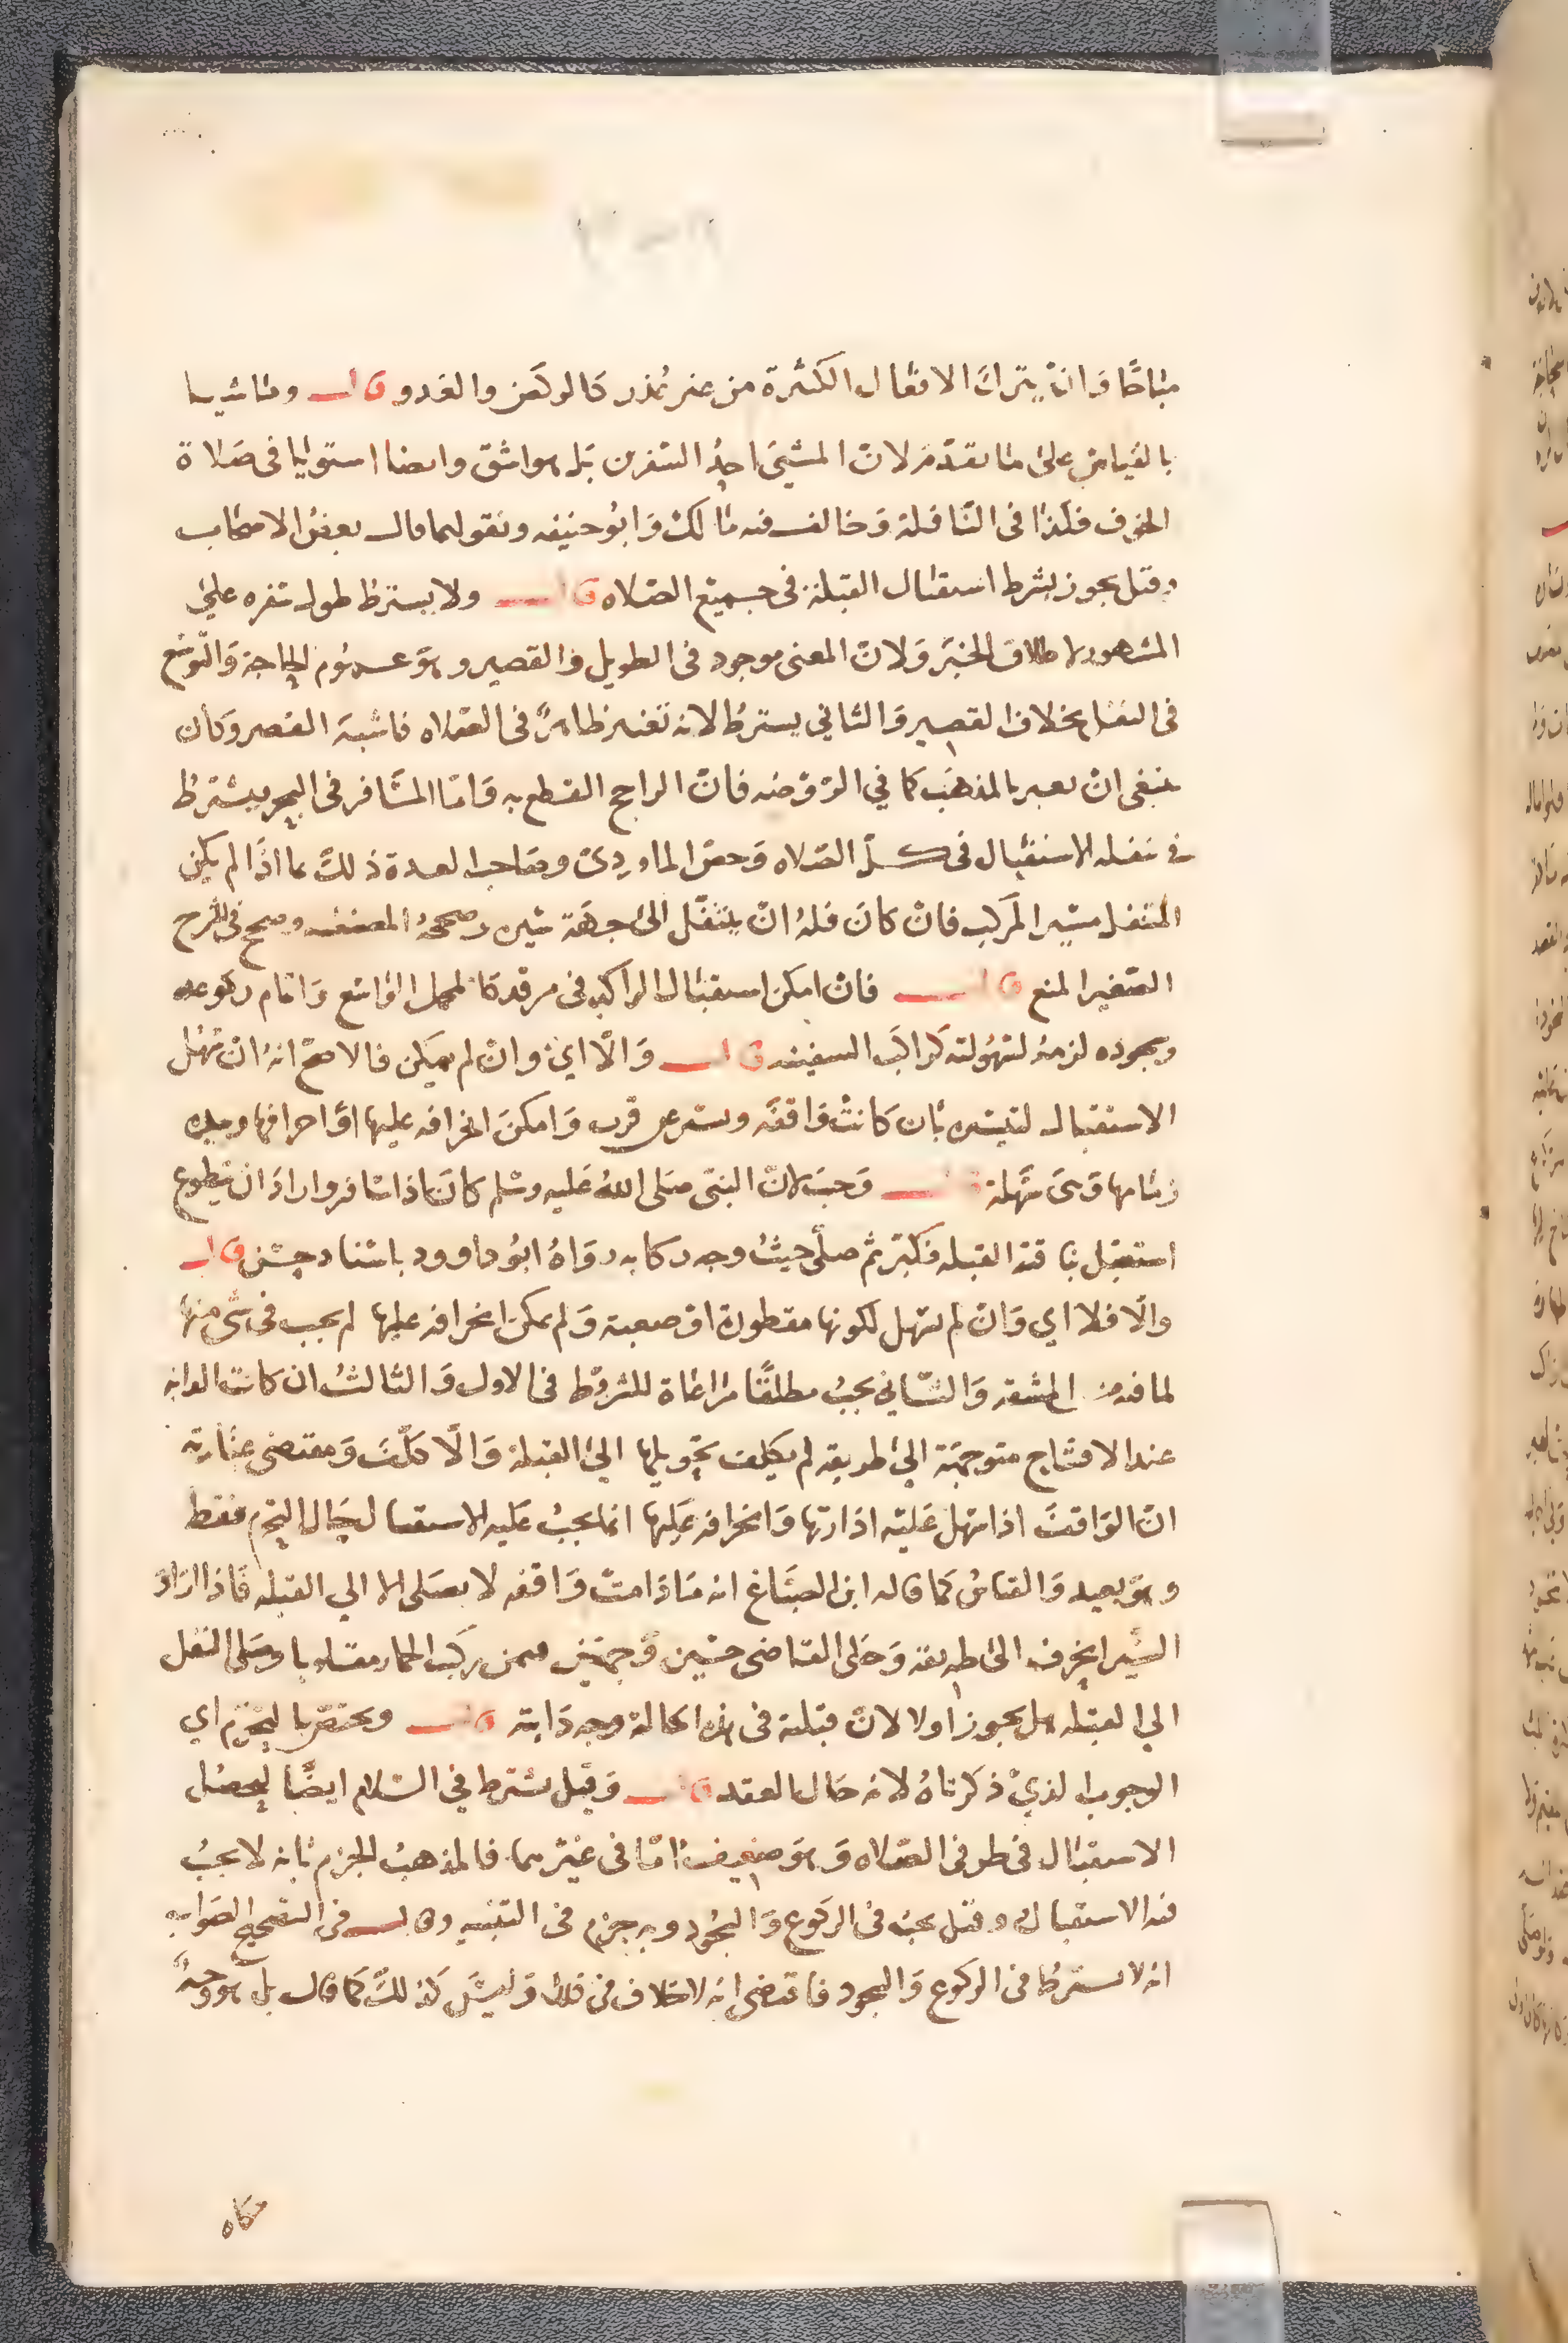 مباحًا وَانْ يترك الافعال الكثيرة من غير عُذر كالركض والعَدو قال وماشيا
بالقياس على ما تقدّم لانّ المشيَ احدُ السفرين بَل هو اشق وايضا استويا فى صَلاة
الخوف فكذا فى النّافلة وَخالف فيه مالك وَابُو حنيفه ونقولهما قال بعضُ الاصحاب
وقيل يجوز بشرط استقبال القبلة فى جميع الصّلاه قال ولا يشترط طول سَفره علىَ
المشهور لاطلاق الخبَر وَلانّ المعنى موجود فى الطويل والقصير وهوَ عمُوم الحاجة وَالتّوسع
فى النفل بخلاف القصر وَالثاني يشترطُ لانه تَغيير ظاهرً فى الصّلاه فاشبهَ القصر وَكان
ينبغى انْ يعبر بالمذهَب كما في الرّوْضه فانّ الراجح القطع به وَامّا المسَافر فى البحر فيشترط
فى تنفله الاستقبال فى كلّ الصّلاه وَخصّ الماوردِىّ وصَاحب العدة ذلكَ بما اذا لم يكن
المتنفل مسَير المركب فانْ كانَ فلهُ انْ يتنفّل الىَ جهَة سَيره وصححهُ المصنف وصحح فى الشرح
الصّغير المنع قال فانْ امكن استقبال الراكب فى مرقد كالمحمل الوَاسع وَاتمام ركوعه
وسجوده لزمهُ لسُهُولته كراكبَ السفينه قال وَالّا اىْ وانْ لم يمكن فالاصحّ انهُ انْ سَهُل
الاستقبال لتيسّره بأن كانتْ وَاقفَه وَامكنَ انحرافه عليها اوَ احرافها وبيده
زمامها وَهىَ سَهلة قال وَجبَ لانّ النبىّ صَلى اللهُ عَليه وسَلم كانَ اذا سَافر واراد انْ يتطوع
استقبَل بناقته القبله فكبّر ثم صلّى حيثُ وجه ركابه روَاهُ ابُو داوود باسْناد حسَن قال
والّا فلا اي وَانْ لم يسَهل لكونها مقطورة اوْ صعبة وَلم يمكن انحرافه عليها لم يجب فى شىْ منها
لما فيه من المشقه وَالثّاني يجبُ مطلقًا مرَاعَاة للشروْط فى الاول وَالثالثُ ان كانت الدابه
عند الافتتاح متوجهة الىَ طريقه لم يكلف تحويلها الىَ القبلة وَالّا كلّفَ وَمقتضى عبَارته
انّ الوَاقفَ اذا سَهل عَليه ادارتها وَانحرافه عَليها انما يجبُ عَليه الاستقبال حَال التحرم فقط
وهوَ بعيد وَالقياسُ كما قاله ابن الصَبَّاغ انه مَا دَامتْ وَاقفه لا يصَلى الا الي القبله فَاذا ارَادَ
السَير انحرف الىَ طريقه وَحَكى القاضى حسَين وَجهَيْن فيمن ركبَ الحمار مقلوبا وَصَلى النفل
الي القبله هل يجوز اولا لانّ قبلته فى هذه الحالة وجه دَابته قال ويختصّ بالتحرّم اي
الوجوب الذيْ ذكرناهُ لانه حَال العقد قال وَقيْل يشترط في السّلام ايضًا ليحصُل
الاستقبال فى طرفى الصّلاه وَهوَ ضعيفُ امّا فى غَيْرهما فالمذهبُ الجزم بَانه لا يجبُ
فيه الاستقبال وقيل يجبُ فى الركوع وَالسّجُود وبه جزم فى التنبيه وقال فى التصحيح الصَواب
انه لا يسترط فى الركوع وَالسجود فاقتضى انه لا خلاف فى ذلك وَليسَ كذلكَ كَما قال بل هو وجهُ
حكاه